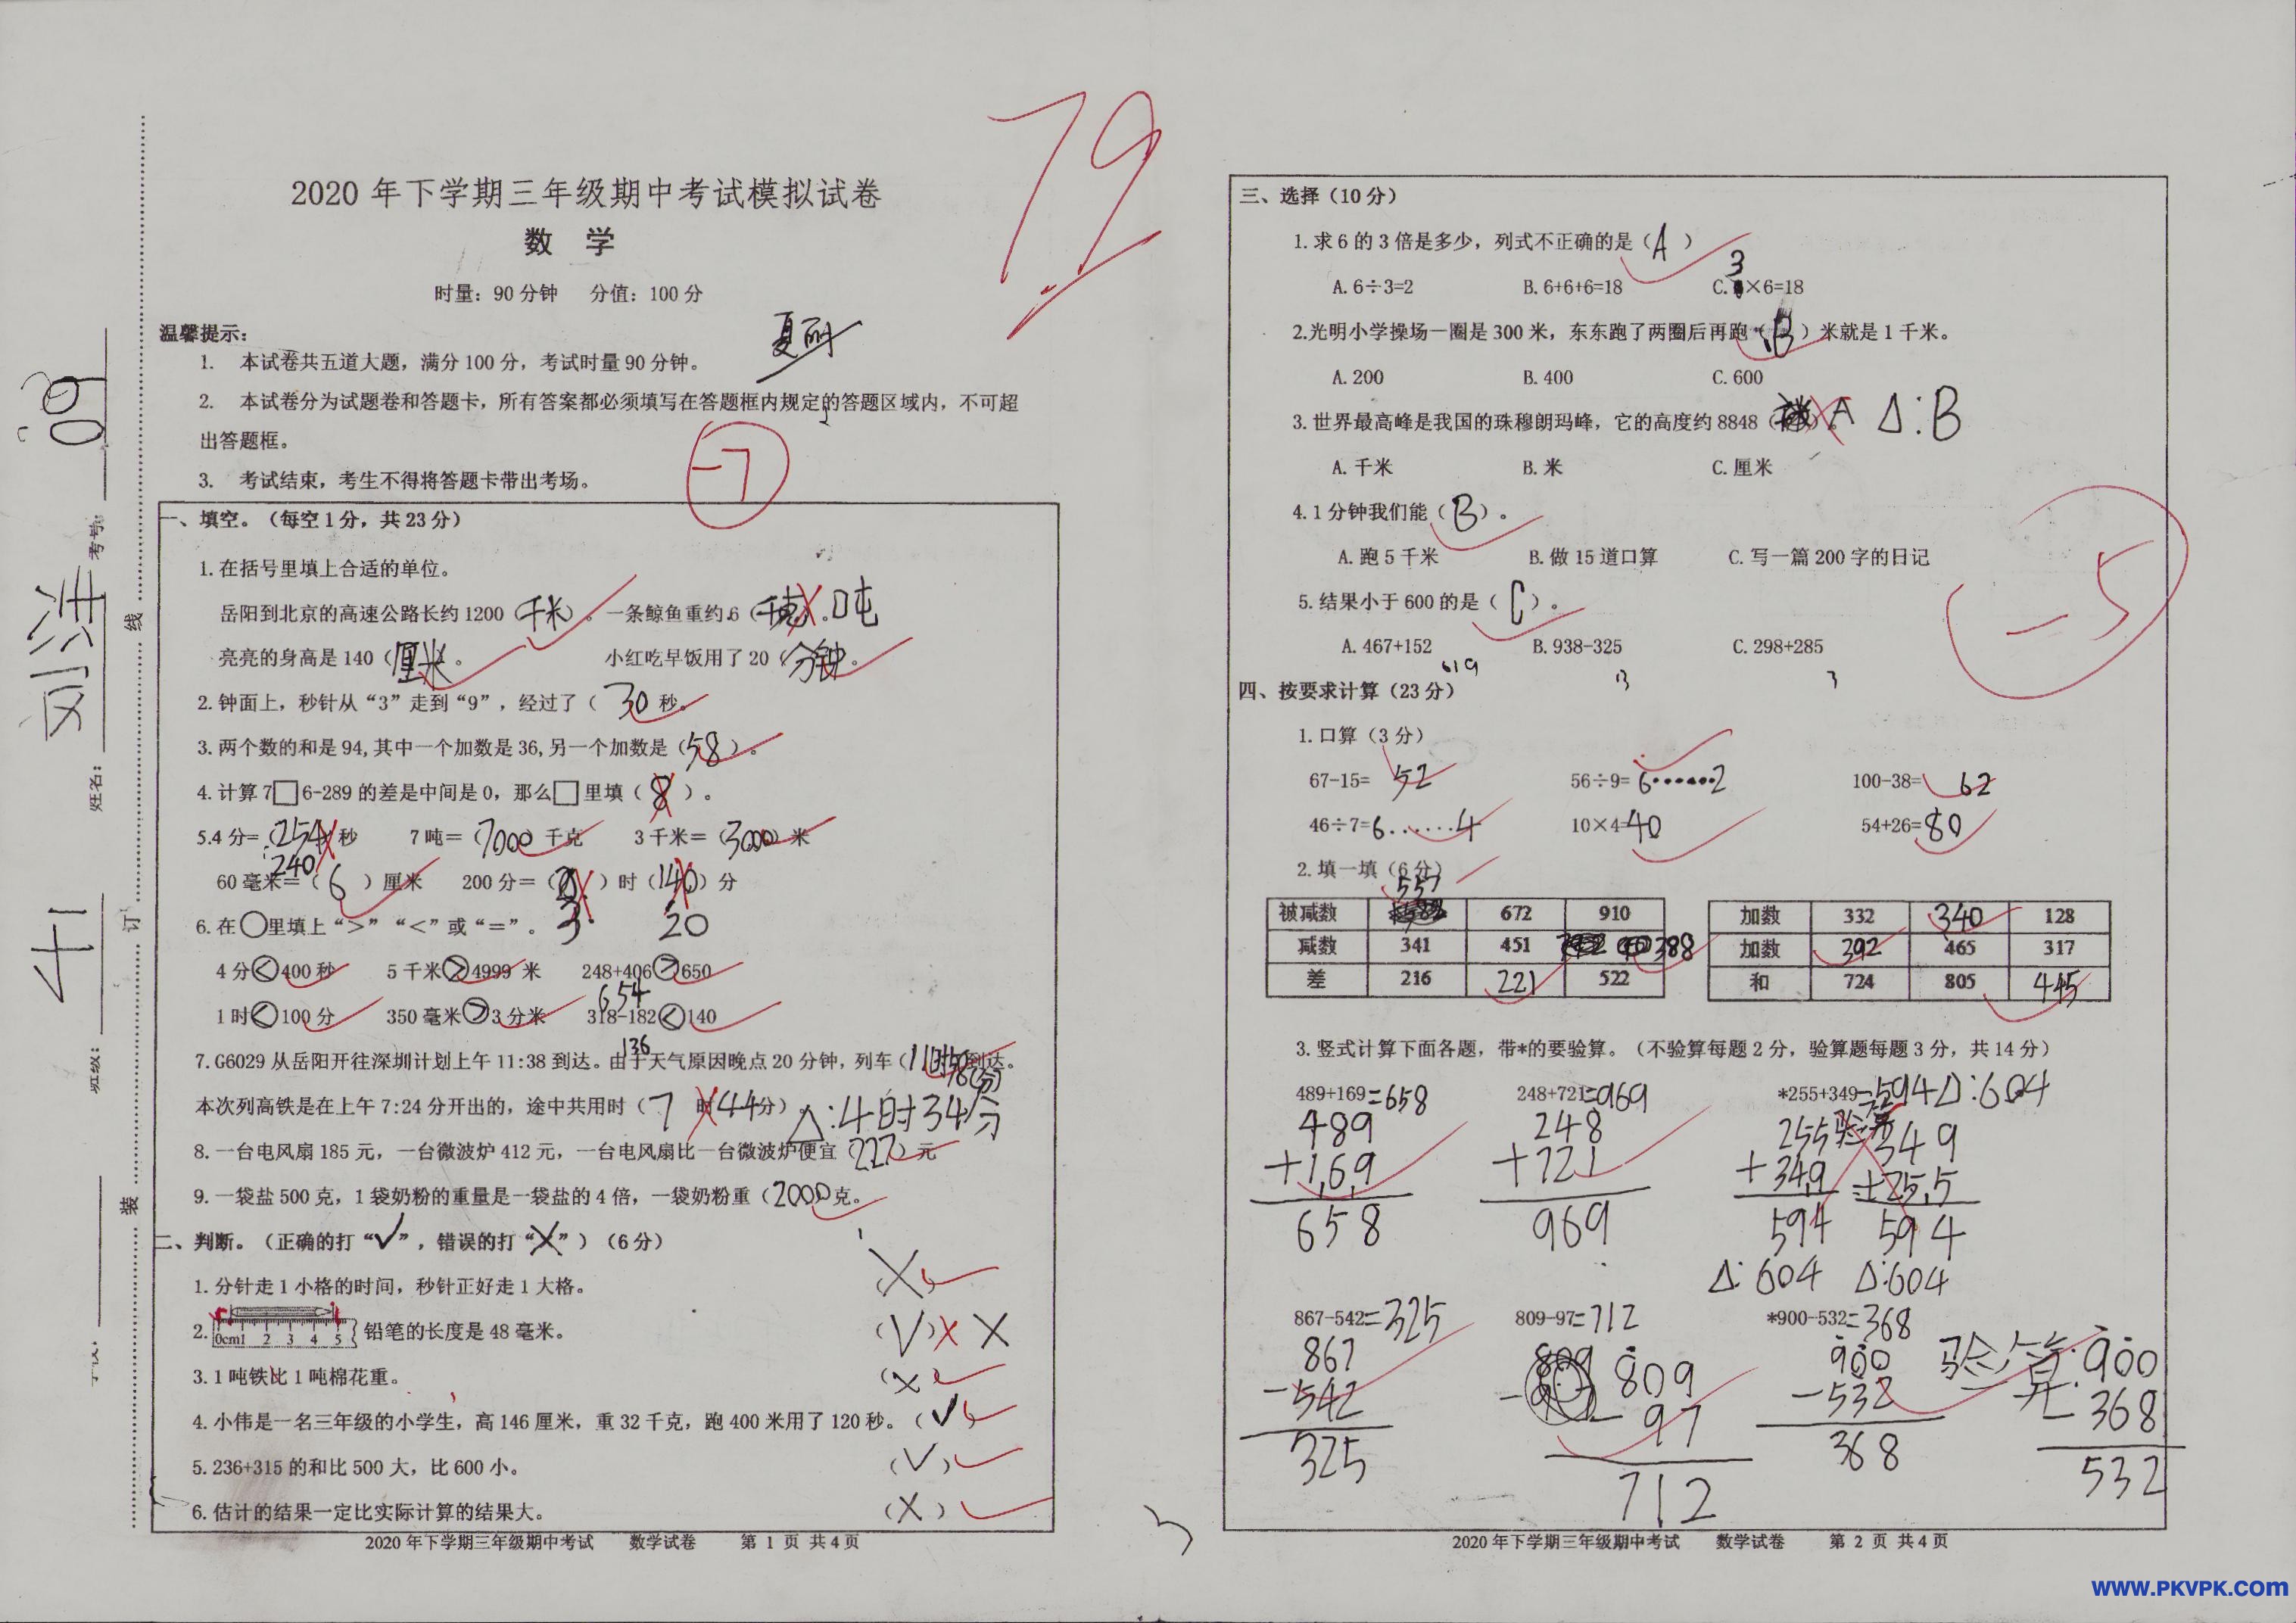 79
2020 年下学期三年级期中考试模拟试卷
数 学
时量：90 分钟 分值：100 分
温馨提示：
1. 本试卷共五道大题，满分 100 分，考试时量 90 分钟。
2. 本试卷分为试题卷和答题卡，所有答案都必须填写在答题框内规定的答题区域内，不可超
出答题框。
3. 考试结束，考生不得将答题卡带出考场。
-7
考号： 09
姓名：
班级：
线
订
装
一、填空。（每空 1 分，共 23 分）
1.在括号里填上合适的单位。
岳阳到北京的高速公路长约 1200（千米）。一条鲸鱼重约 6（千克）. 吨
亮亮的身高是 140（厘米）。 小红吃早饭用了 20（分钟）。
2.钟面上，秒针从“3”走到“9”，经过了（ 30 秒。
3.两个数的和是 94,其中一个加数是 36,另一个加数是（58）。
4.计算 7□6-289 的差是中间是 0，那么□里填（ 8 ）。
5.4 分=（254）秒 7 吨=（7000）千克 3 千米=（3000）米
240
60 毫米=（ 6 ）厘米 200 分=（ ）时（140）分
3 20
6.在○里填上“>”“<”或“=”。
4 分<400 秒 5 千米>4999 米 248+406>650
654
1 时<100 分 350 毫米>3 分米 318-182<140
136
7.G6029 从岳阳开往深圳计划上午 11:38 到达。由于天气原因晚点 20 分钟，列车（ 到达。
本次列高铁是在上午 7:24 分开出的，途中共用时（7 时44分）。 △:4时34分
8.一台电风扇 185 元，一台微波炉 412 元，一台电风扇比一台微波炉便宜（227）元
9.一袋盐 500 克，1 袋奶粉的重量是一袋盐的 4 倍，一袋奶粉重（2000克。
二、判断。（正确的打“√”，错误的打“×”）（6 分）
1.分针走 1 小格的时间，秒针正好走 1 大格。 （×）
2. 0cm1 2 3 4 5 铅笔的长度是 48 毫米。 （√）× ×
3.1 吨铁比 1 吨棉花重。 （×）
4.小伟是一名三年级的小学生，高 146 厘米，重 32 千克，跑 400 米用了 120 秒。（√）
5.236+315 的和比 500 大，比 600 小。 （√）
6.估计的结果一定比实际计算的结果大。 （×）
2020 年下学期三年级期中考试 数学试卷 第 1 页 共 4 页
三、选择（10 分）
1.求 6 的 3 倍是多少，列式不正确的是（A ）
A.6÷3=2 B.6+6+6=18 C.3×6=18
2.光明小学操场一圈是 300 米，东东跑了两圈后再跑（B）米就是 1 千米。
A.200 B.400 C.600
3.世界最高峰是我国的珠穆朗玛峰，它的高度约 8848（ ）。A △:B
A.千米 B.米 C.厘米
4.1 分钟我们能（B）。
A.跑 5 千米 B.做 15 道口算 C.写一篇 200 字的日记
5.结果小于 600 的是（C）。
A.467+152 B.938-325 C.298+285
619 13 7
-5
四、按要求计算（23 分）
1.口算（3 分）
67-15= 52 56÷9=6……2 100-38= 62
46÷7=6……4 10×4=40 54+26=80
2.填一填（6 分）
被减数 557 672 910
减数 341 451 388
差 216 221 522
加数 332 340 128
加数 392 465 317
和 724 805 445
3.竖式计算下面各题，带*的要验算。（不验算每题 2 分，验算题每题 3 分，共 14 分）
489+169=658 248+721=969 *255+349=594 △:604
489 248 255 验算 349
+169 +721 +349 +255
658 969 594 594
△:604 △:604
867-542=325 809-97=712 *900-532=368
867 809 900 验算:900
-542 -97 -532 -368
325 712 368 532
2020 年下学期三年级期中考试 数学试卷 第 2 页 共 4 页
www.PKVPK.com